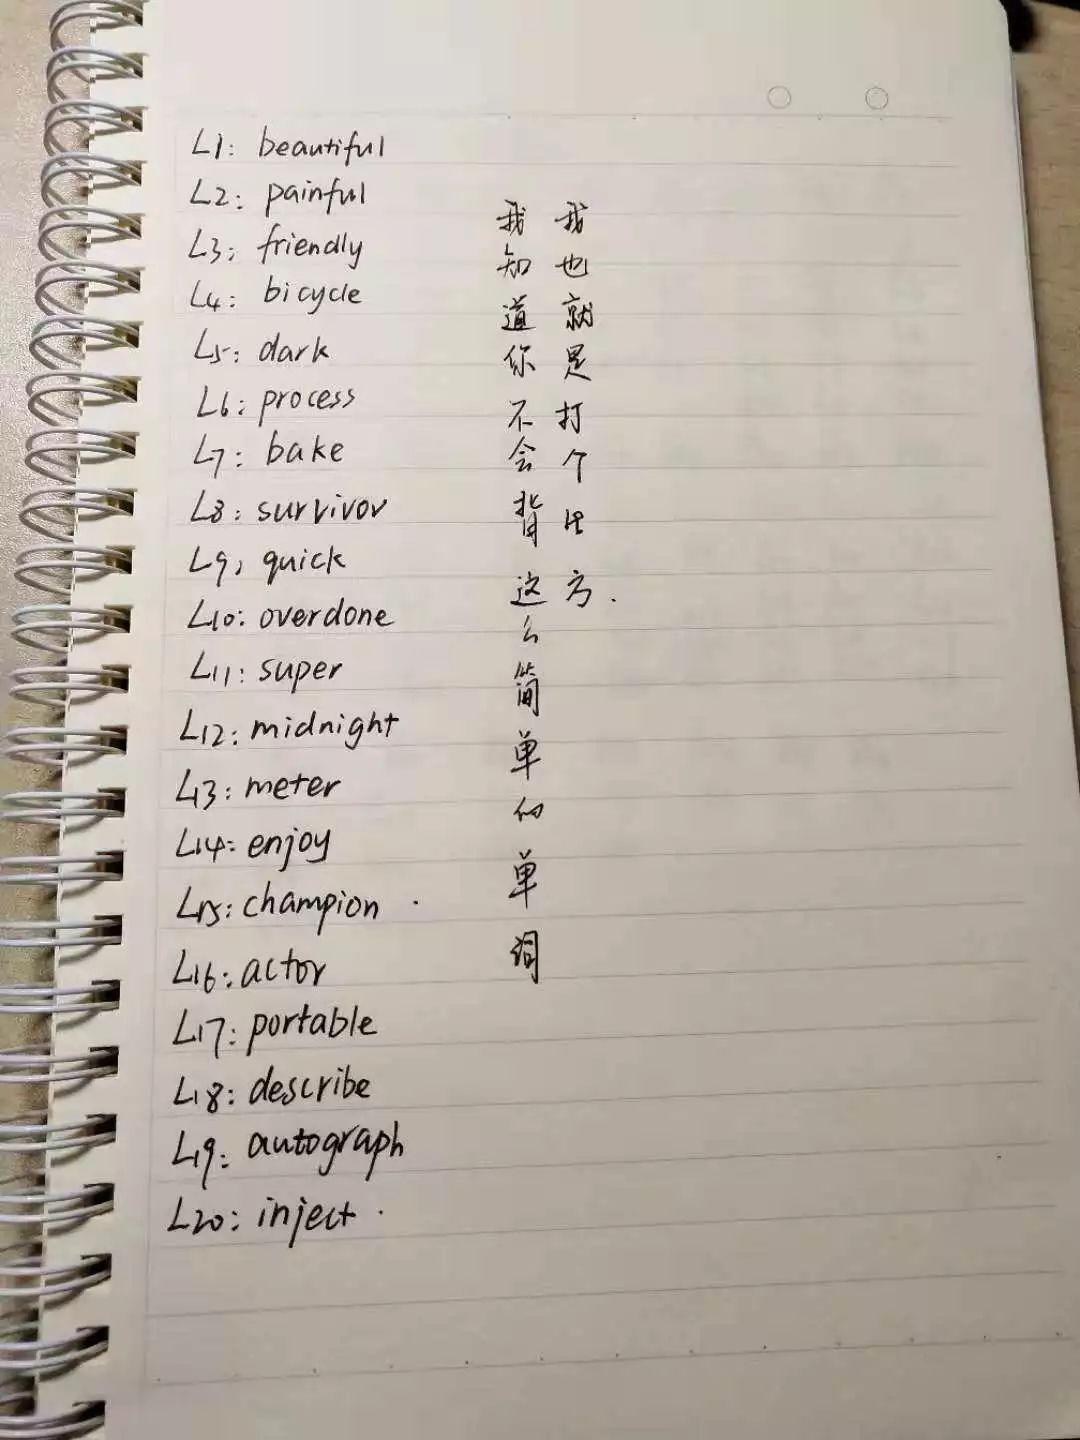 L1: beautiful
L2: painful
L3: friendly
L4: bicycle
L5: dark
L6: process
L7: bake
L8: survivor
L9, quick
L10: overdone
L11: super
L12: midnight
L13: meter
L14: enjoy
L15: champion.
L16: actor
L17: portable
L18: describe
L19: autograph
L20: inject.
我知道你不会背这么简单的单词
我也就是打个比方.